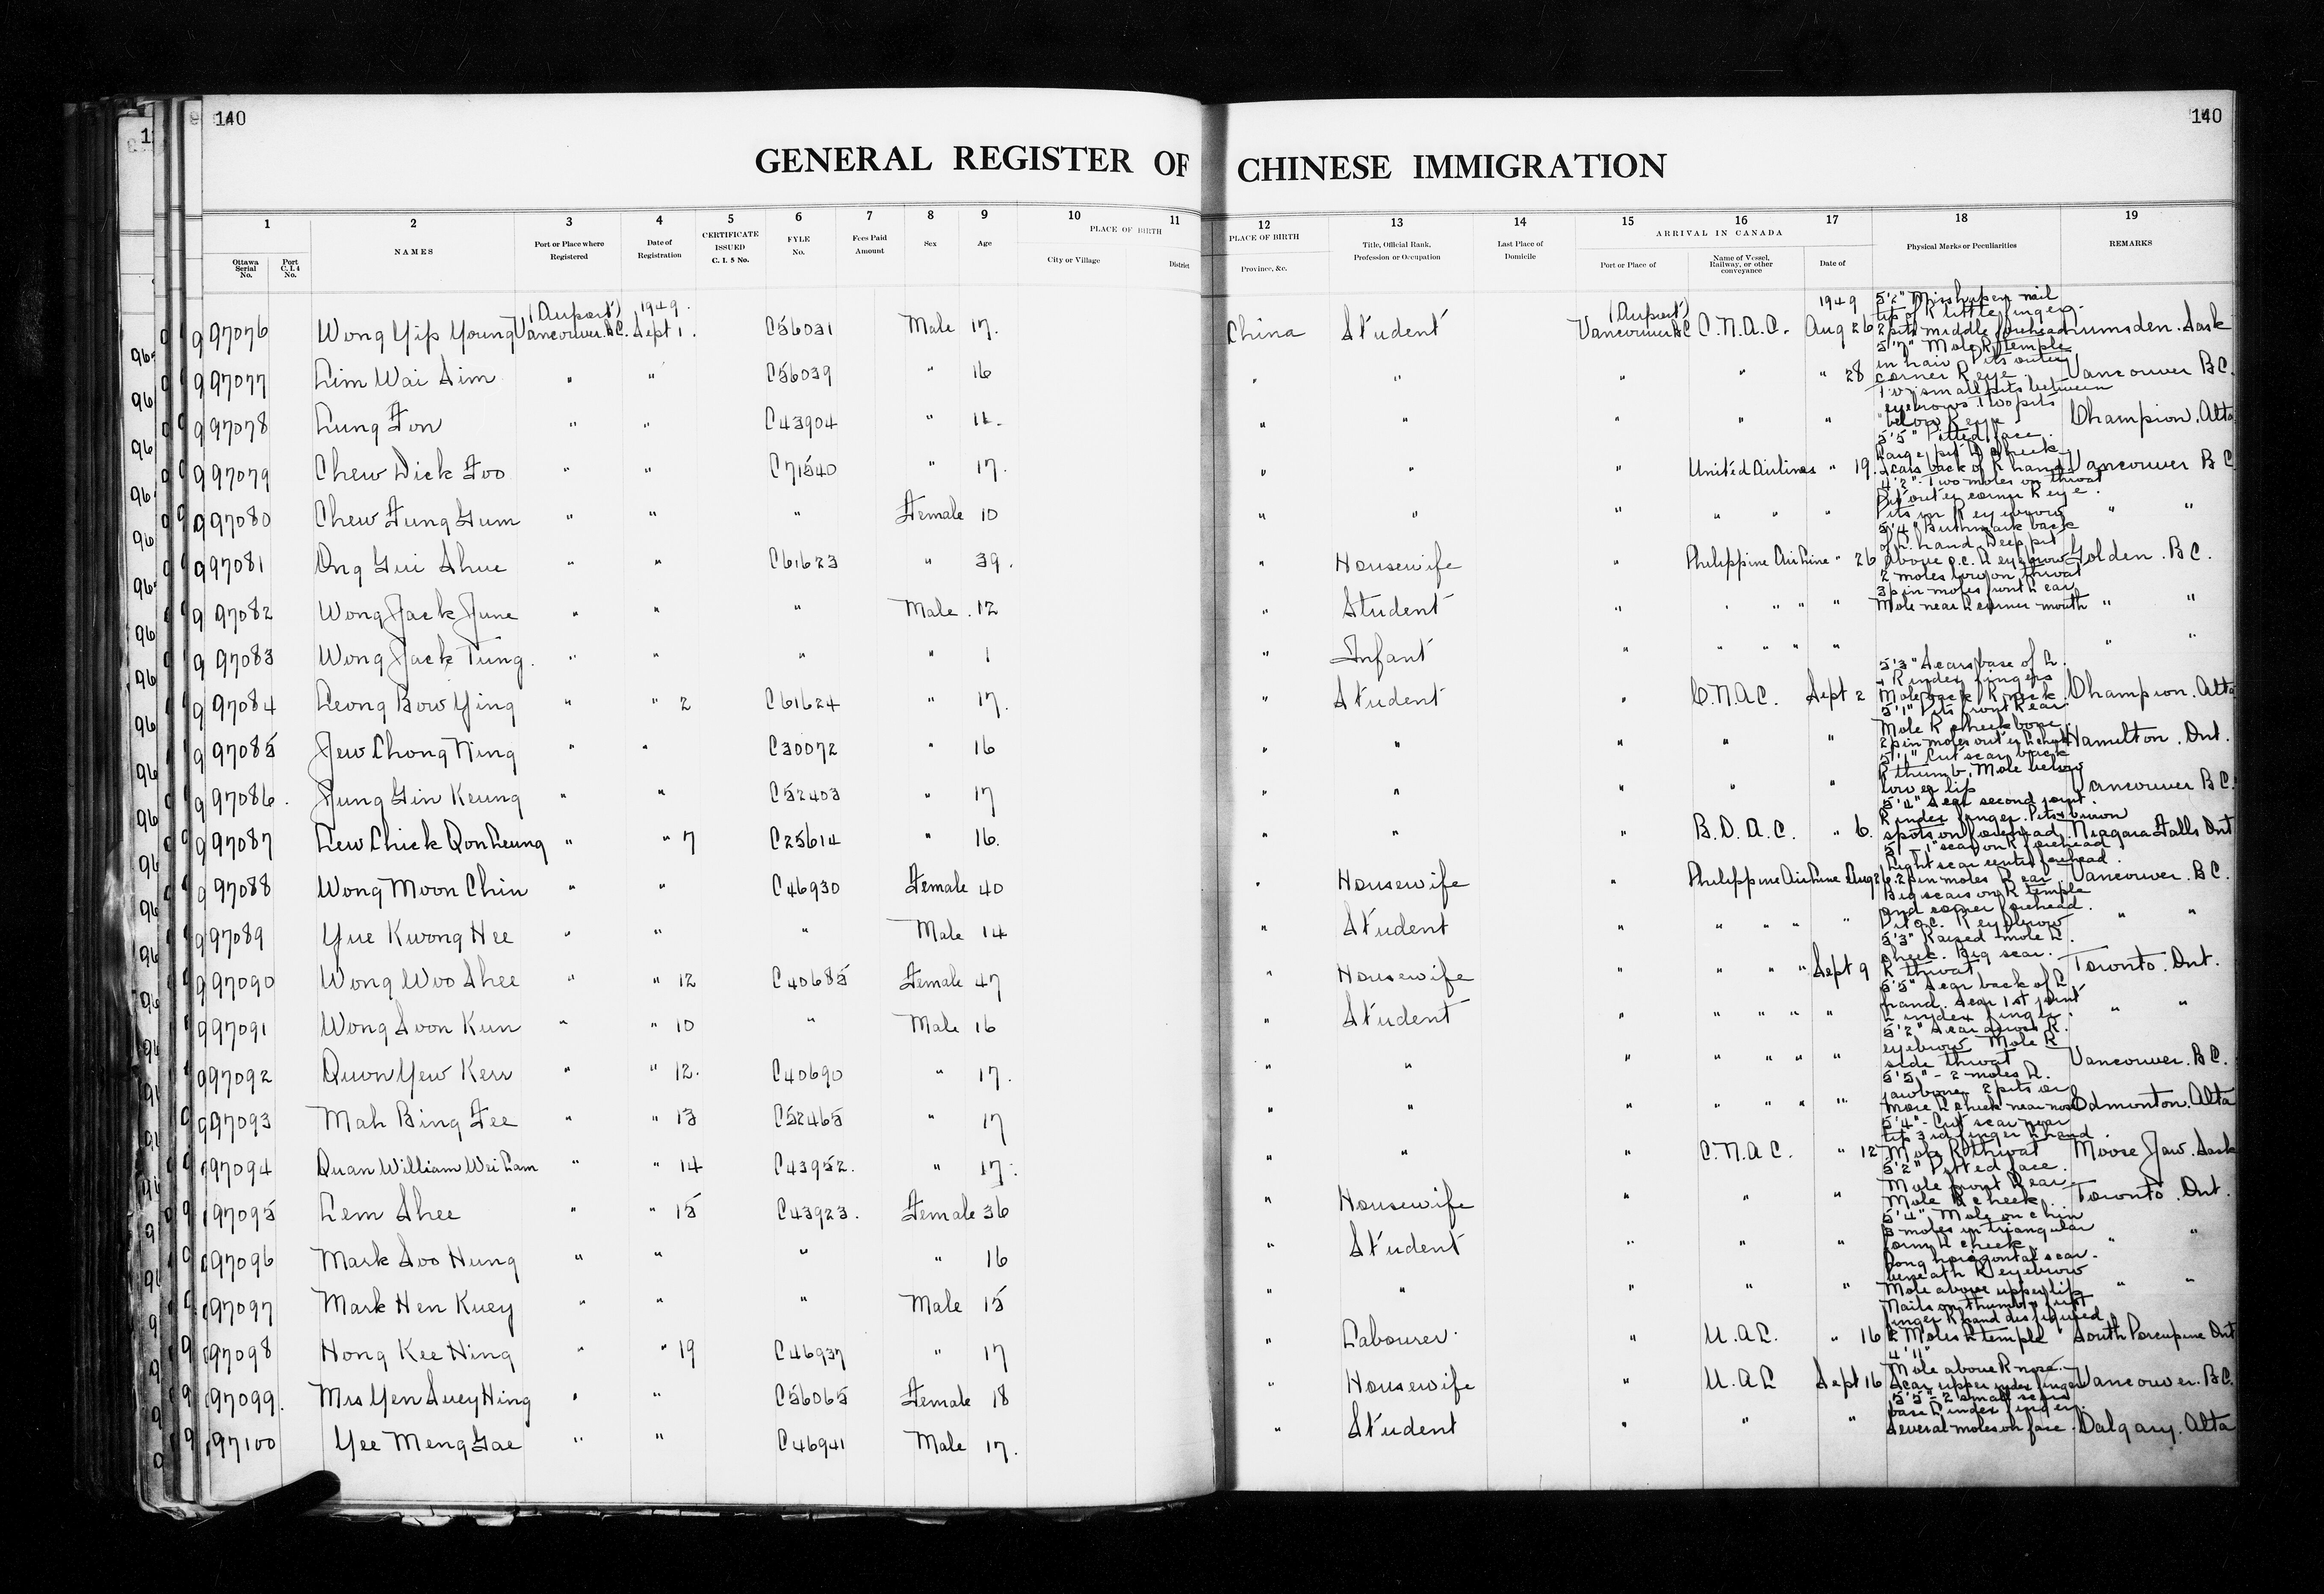 140
140
GENERAL REGISTER OF CHINESE IMMIGRATION
1 2 3 4 5 6 7 8 9 10 11 12 13 14 15 16 17 18 19
Ottawa Serial No.
Port C.I.4 No.
NAMES
Port or Place where Registered
Date of Registration
CERTIFICATE ISSUED C. I. 5 No.
FYLE No.
Fees Paid Amount
Sex
Age
PLACE OF BIRTH
City or Village
District
PLACE OF BIRTH
Province, &c.
Title, Official Rank, Profession or Occupation
Last Place of Domicile
ARRIVAL IN CANADA
Port or Place of
Name of Vessel, Railway, or other conveyance
Date of
Physical Marks or Peculiarities
REMARKS
97076 Wong Yip Young (Airport) Vancouver. B.C. 1949. Sept 1. C56031 Male 17. China Student (Airport) Vancouver BC C.N.A.C. 1949 Aug 26 5'2" Misshapen nail tip of R little finger. 2 pits middle forehead Lumsden. Sask
97077 Lim Wai Sim " " C56039 " 16 " " " " " 28 5'7" Mole R temple in hair Pits outer corner R eye. Vancouver B.C.
97078 Lung Fon " " C43904 " " " " " " Two small pits between eyebrows Two pits below R eye. Champion. Alta
97079 Chew Dick Foo " " C71540 " 17. " " " United Airlines " 19. 5'5" Pitted face. Large pit L cheek. Scars back of R hand Vancouver B C
97080 Chew Fung Gum " " " Female 10 " " " " " " 4'2" - Two moles on throat Pit outer corner R eye. Pits in R eyebrow " "
97081 Ong Gui Shue " " C61623 " 39. " Housewife " Philippine Airline " 26 5'4" Birthmark back of L. hand. Deep pit above o.c. L eyebrow Golden. B C.
97082 Wong Jack June " " " Male. 12 " Student " " " " " 2 moles low on throat 3 pin moles front L ear Mole near L corner mouth " "
97083 Wong Jack Tung. " " " " 1 " Infant " " " " " " "
97084 Leong Bow Ying " " 2 C61624 " 17. " Student " C.N.A.C. Sept 2 5'3" Scars base of L. + R index fingers Mole back R neck. Champion. Alta
97085 Jew Chong Ning " " C30072 " 16 " " " " " 5'1" Pits front R ear Mole R cheekbone. 2 pin moles outer L eye Hamilton. Ont.
97086. Jung Gin Keung " " C52403 " 17 " " " " " 5'1" Cut scar back R thumb. Mole below lower lip Vancouver B C.
97087 Lew Chick Qon Leung " " 7 C25614 " 16. " " " B.O.A.C. " 6. 5'4" Scar second joint. R index finger. Pits + brown spots on forehead. Niagara Falls Ont
97088 Wong Moon Chin " " C46930 Female 40 " Housewife " Philippine Airline Aug 26 scar on R forehead Light scar center forehead. 2 pin moles R ear. Vancouver. B C.
97089 Yue Kwong Hee " " " Male 14 " Student " " " " " Big scars on R temple and corner forehead. Pit o.c. R eyebrow " "
97090 Wong Woo Shee " " 12 C40685 Female 47 " Housewife " " " " Sept 9 5'3" Raised mole L. cheek. Big scar. R throat Toronto. Ont.
97091 Wong Soon Kun " " 10 " Male 16 " Student " " " " " 5'5" Scar back of L hand. Scar 1st joint L index finger. " "
97092 Quon Yew Kerr " " 12. C40690 " 17. " " " " " " " 5'2" Scar across R. eyebrow Mole R side throat Vancouver. B.C.
97093 Mah Bing Fee " " 13 C52465 " 17 " " " " " " " 5'5" - 2 moles L. jawbone. 2 pits or more L cheek near nose Edmonton. Alta
97094 Quan William Wei Lam " " 14 C43952. " 17. " " " C.N.A.C. " 12 5'4" - Cut scar near tip 3rd finger L hand. Mole R throat Moose Jaw. Sask
97095 Lem Shee " " 15 C43923. Female 36 " Housewife " " " 5'2" Pitted face. Mole front R ear. Mole R cheek. Toronto. Ont.
97096 Mark Soo Hung " " " " 16 " Student " " " 5'4" Mole on chin 3 moles in triangular form L cheek. " "
97097 Mark Hen Kuey " " " Male 15 " " " " " Long horizontal scar. beneath R eyebrow Mole above upper lip " "
97098 Hong Kee Hing " " 19 C46937 " 17 " Labourer. " U.A.L. " 16 Nails on thumb + first finger R hand disfigured 2 Moles L temple South Porcupine Ont
97099. Mrs Yen Suey Hing " " C56065 Female 18 " Housewife " U.A.L Sept 16 4'11" Mole above R nose. Scar upper index finger Vancouver. B.C.
97100 Yee Meng Gae " " C46941 Male 17. " Student " " " 5'5" - 2 small scars base L index finger. Several moles on face. Calgary. Alta